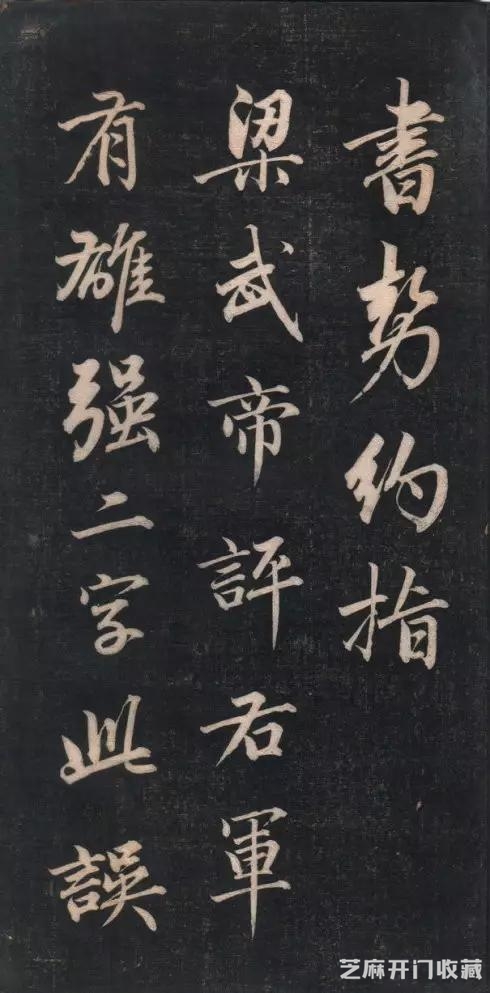 書勢約指
梁武帝評右軍
有雄强二字此誤
芝麻开门收藏